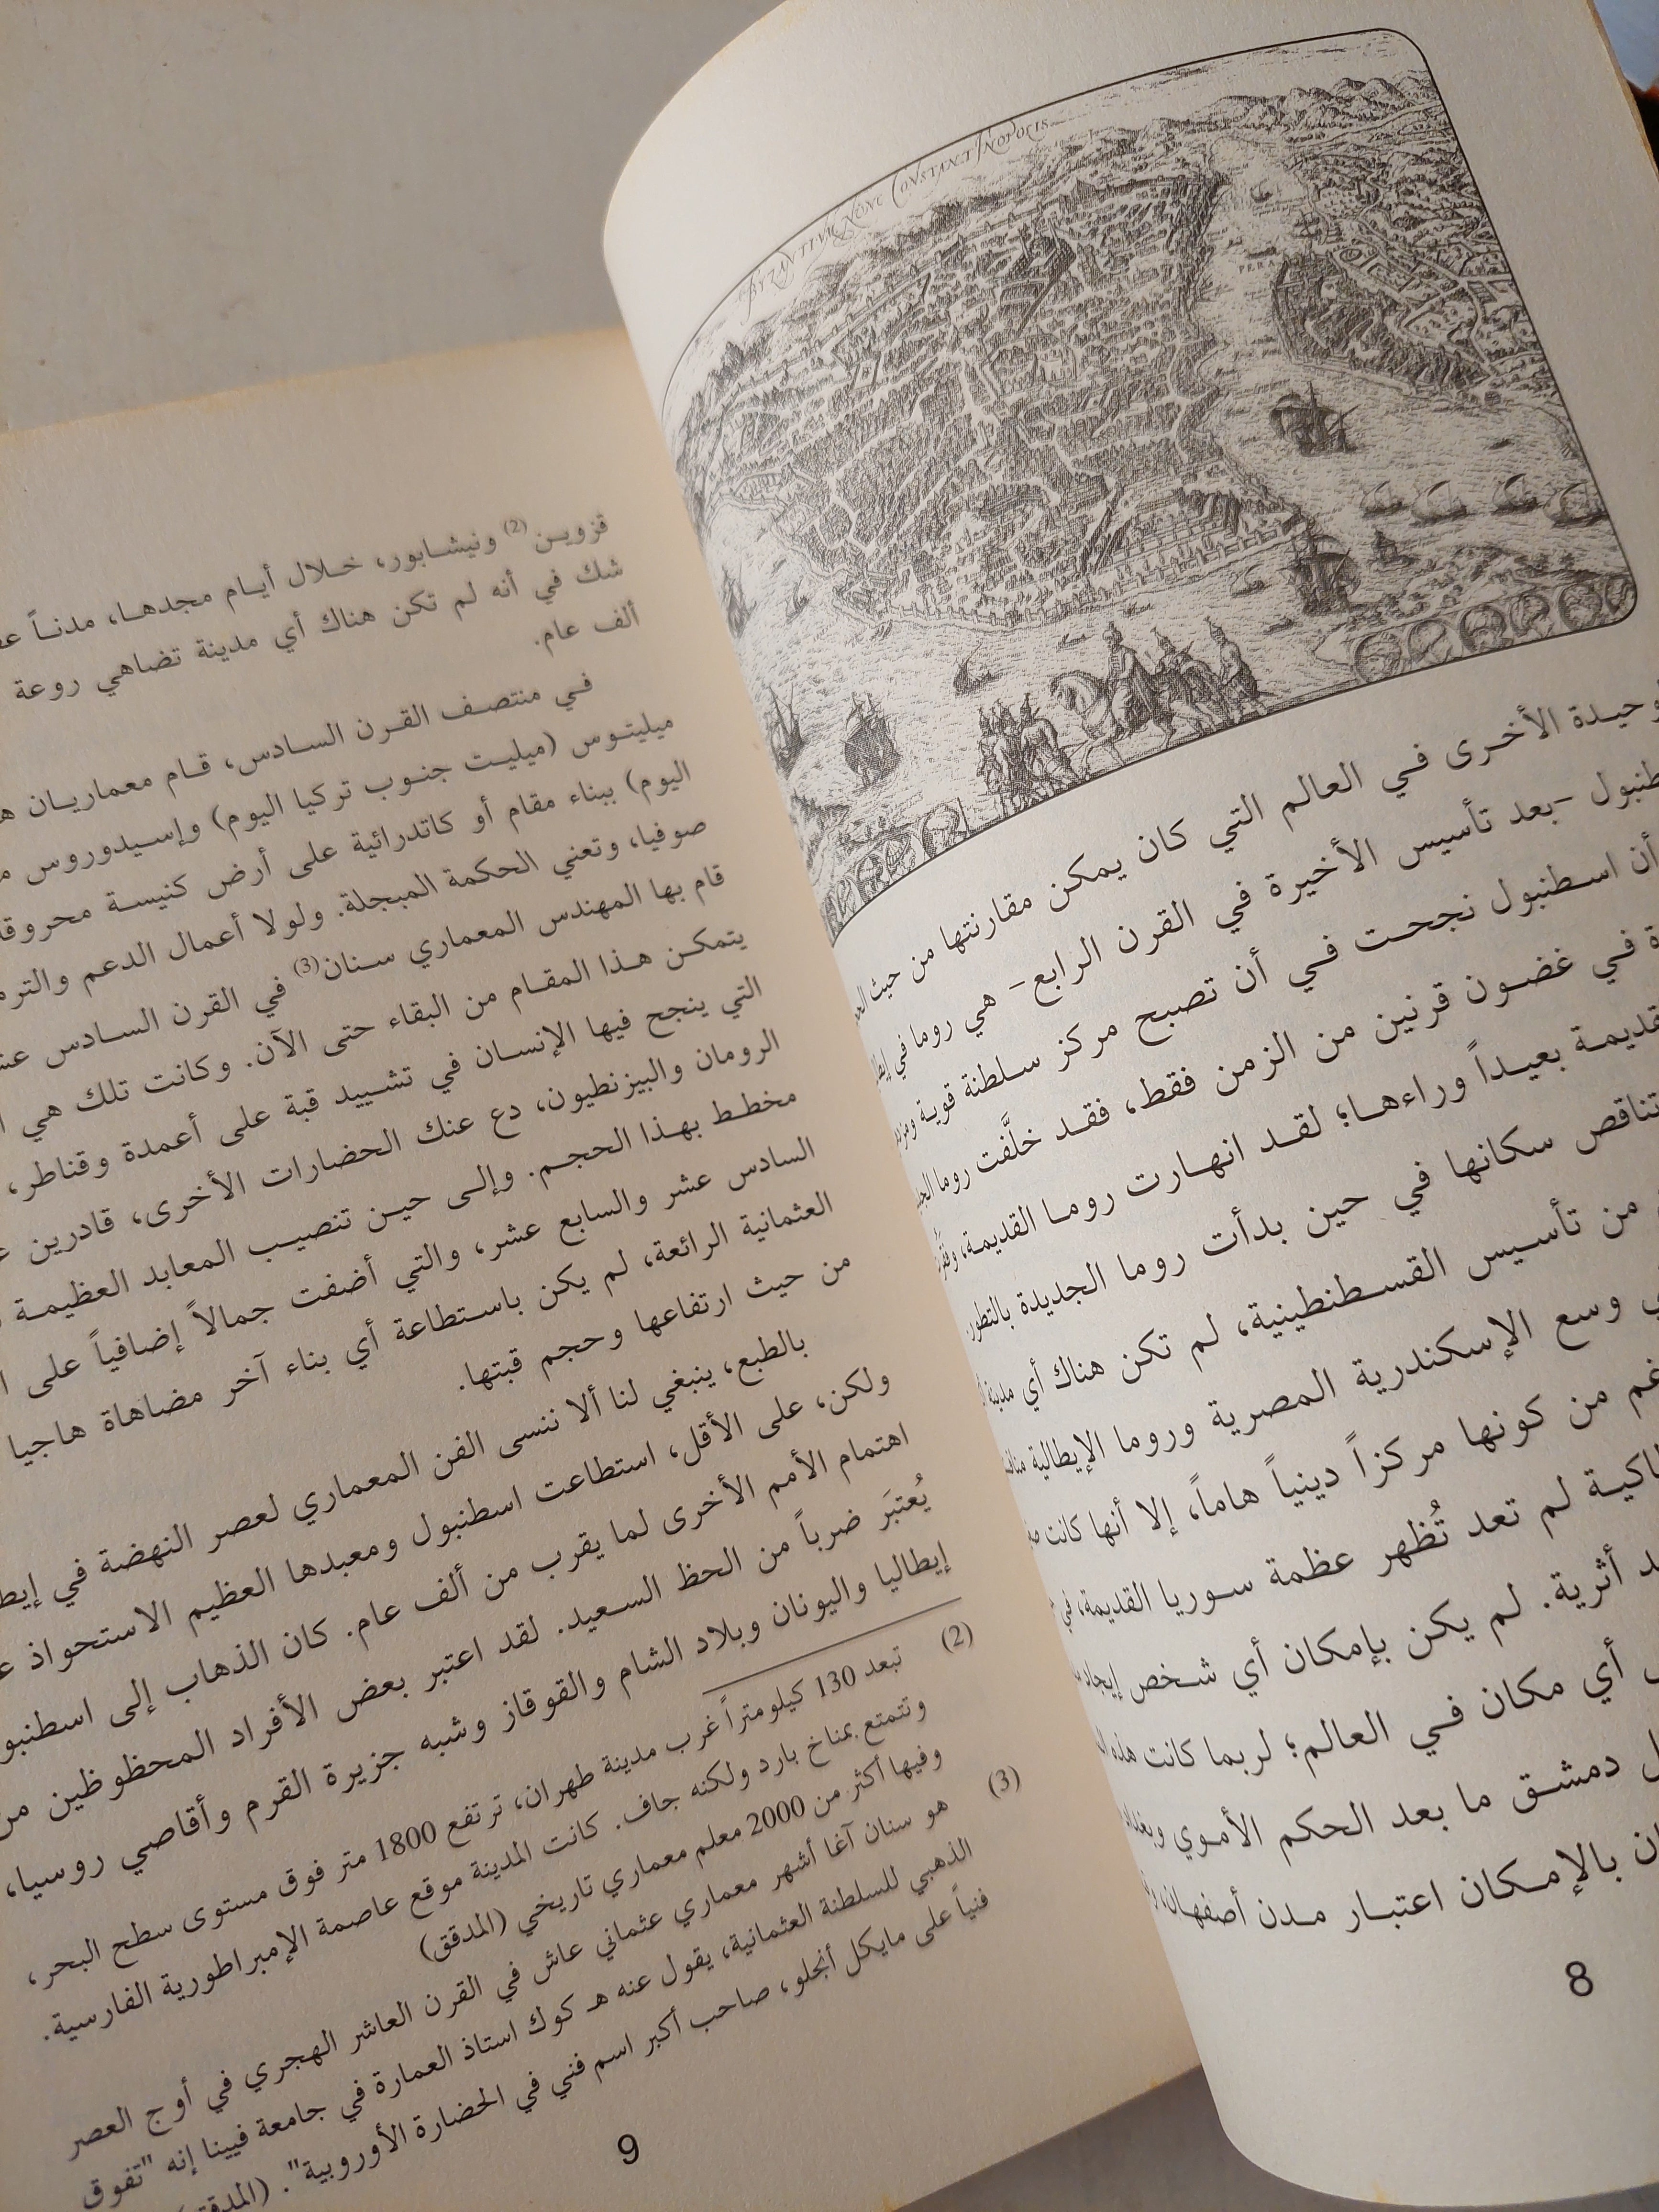 BYZANTIVM NUNC CONSTANTINOPOLIS
PERA
وحيدة الأخرى في العالم التي كان يمكن مقارنتها من حيث
بعد تأسيس الأخيرة في القرن الرابع- هي روما في
أن اسطنبول نجحت في أن تصبح مركز سلطنة قوية
في غضون قرنين من الزمن فقط، فقد خلَّفت روما
بعيداً وراءها؛ لقد انهارت روما القديمة،
تناقص سكانها في حين بدأت روما الجديدة بالتطور
من تأسيس القسطنطينية، لم تكن هناك أي مدينة
وسع الإسكندرية المصرية وروما الإيطالية
من كونها مركزاً دينياً هاماً، إلا أنها كانت
لم تعد تُظهر عظمة سوريا القديمة، في
أثرية. لم يكن بإمكان أي شخص إيجاد
أي مكان في العالم؛ لربما كانت هذه
دمشق ما بعد الحكم الأموي وبغداد
بالإمكان اعتبار مدن أصفهان،
8
قزوين(2) ونيشابور، خلال أيام مجدها، مدناً
شك في أنه لم تكن هناك أي مدينة تضاهي روعة
ألف عام.
في منتصف القرن السادس، قام معماريان
ميليتوس (ميليت جنوب تركيا اليوم) وإسيدوروس
اليوم) ببناء مقام أو كاتدرائية على أرض كنيسة محروقة
صوفيا، وتعني الحكمة المبجلة. ولولا أعمال الدعم
قام بها المهندس المعماري سنان(3) في القرن السادس
يتمكن هذا المقام من البقاء حتى الآن. وكانت تلك هي
التي ينجح فيها الإنسان في تشييد قبة على أعمدة وقناطر،
الرومان والبيزنطيون، دع عنك الحضارات الأخرى، قادرين
مخطط بهذا الحجم. وإلى حين تنصيب المعابد العظيمة
السادس عشر والسابع عشر، والتي أضفت جمالاً إضافياً على
العثمانية الرائعة، لم يكن باستطاعة أي بناء آخر مضاهاة هاجيا
من حيث ارتفاعها وحجم قبتها.
بالطبع، ينبغي لنا ألا ننسى الفن المعماري لعصر النهضة في
ولكن، على الأقل، استطاعت اسطنبول ومعبدها العظيم الاستحواذ
اهتمام الأمم الأخرى لما يقرب من ألف عام. كان الذهاب إلى
يُعتبَر ضرباً من الحظ السعيد. لقد اعتبر بعض الأفراد المحظوظين من
إيطاليا واليونان وبلاد الشام والقوقاز وشبه جزيرة القرم وأقاصي روسيا،
(2) تبعد 130 كيلومتراً غرب مدينة طهران، ترتفع 1800 متر فوق مستوى سطح البحر،
وتتمتع بمناخ بارد ولكنه جاف. كانت المدينة موقع عاصمة الإمبراطورية الفارسية.
وفيها أكثر من 2000 معلم معماري تاريخي (المدقق)
(3) هو سنان آغا أشهر معماري عثماني عاش في القرن العاشر الهجري في أوج العصر
الذهبي للسلطنة العثمانية، يقول عنه هـ كوك استاذ العمارة في جامعة فيينا إنه "تفوق
فنياً على مايكل أنجلو، صاحب أكبر اسم فني في الحضارة الأوروبية".
9